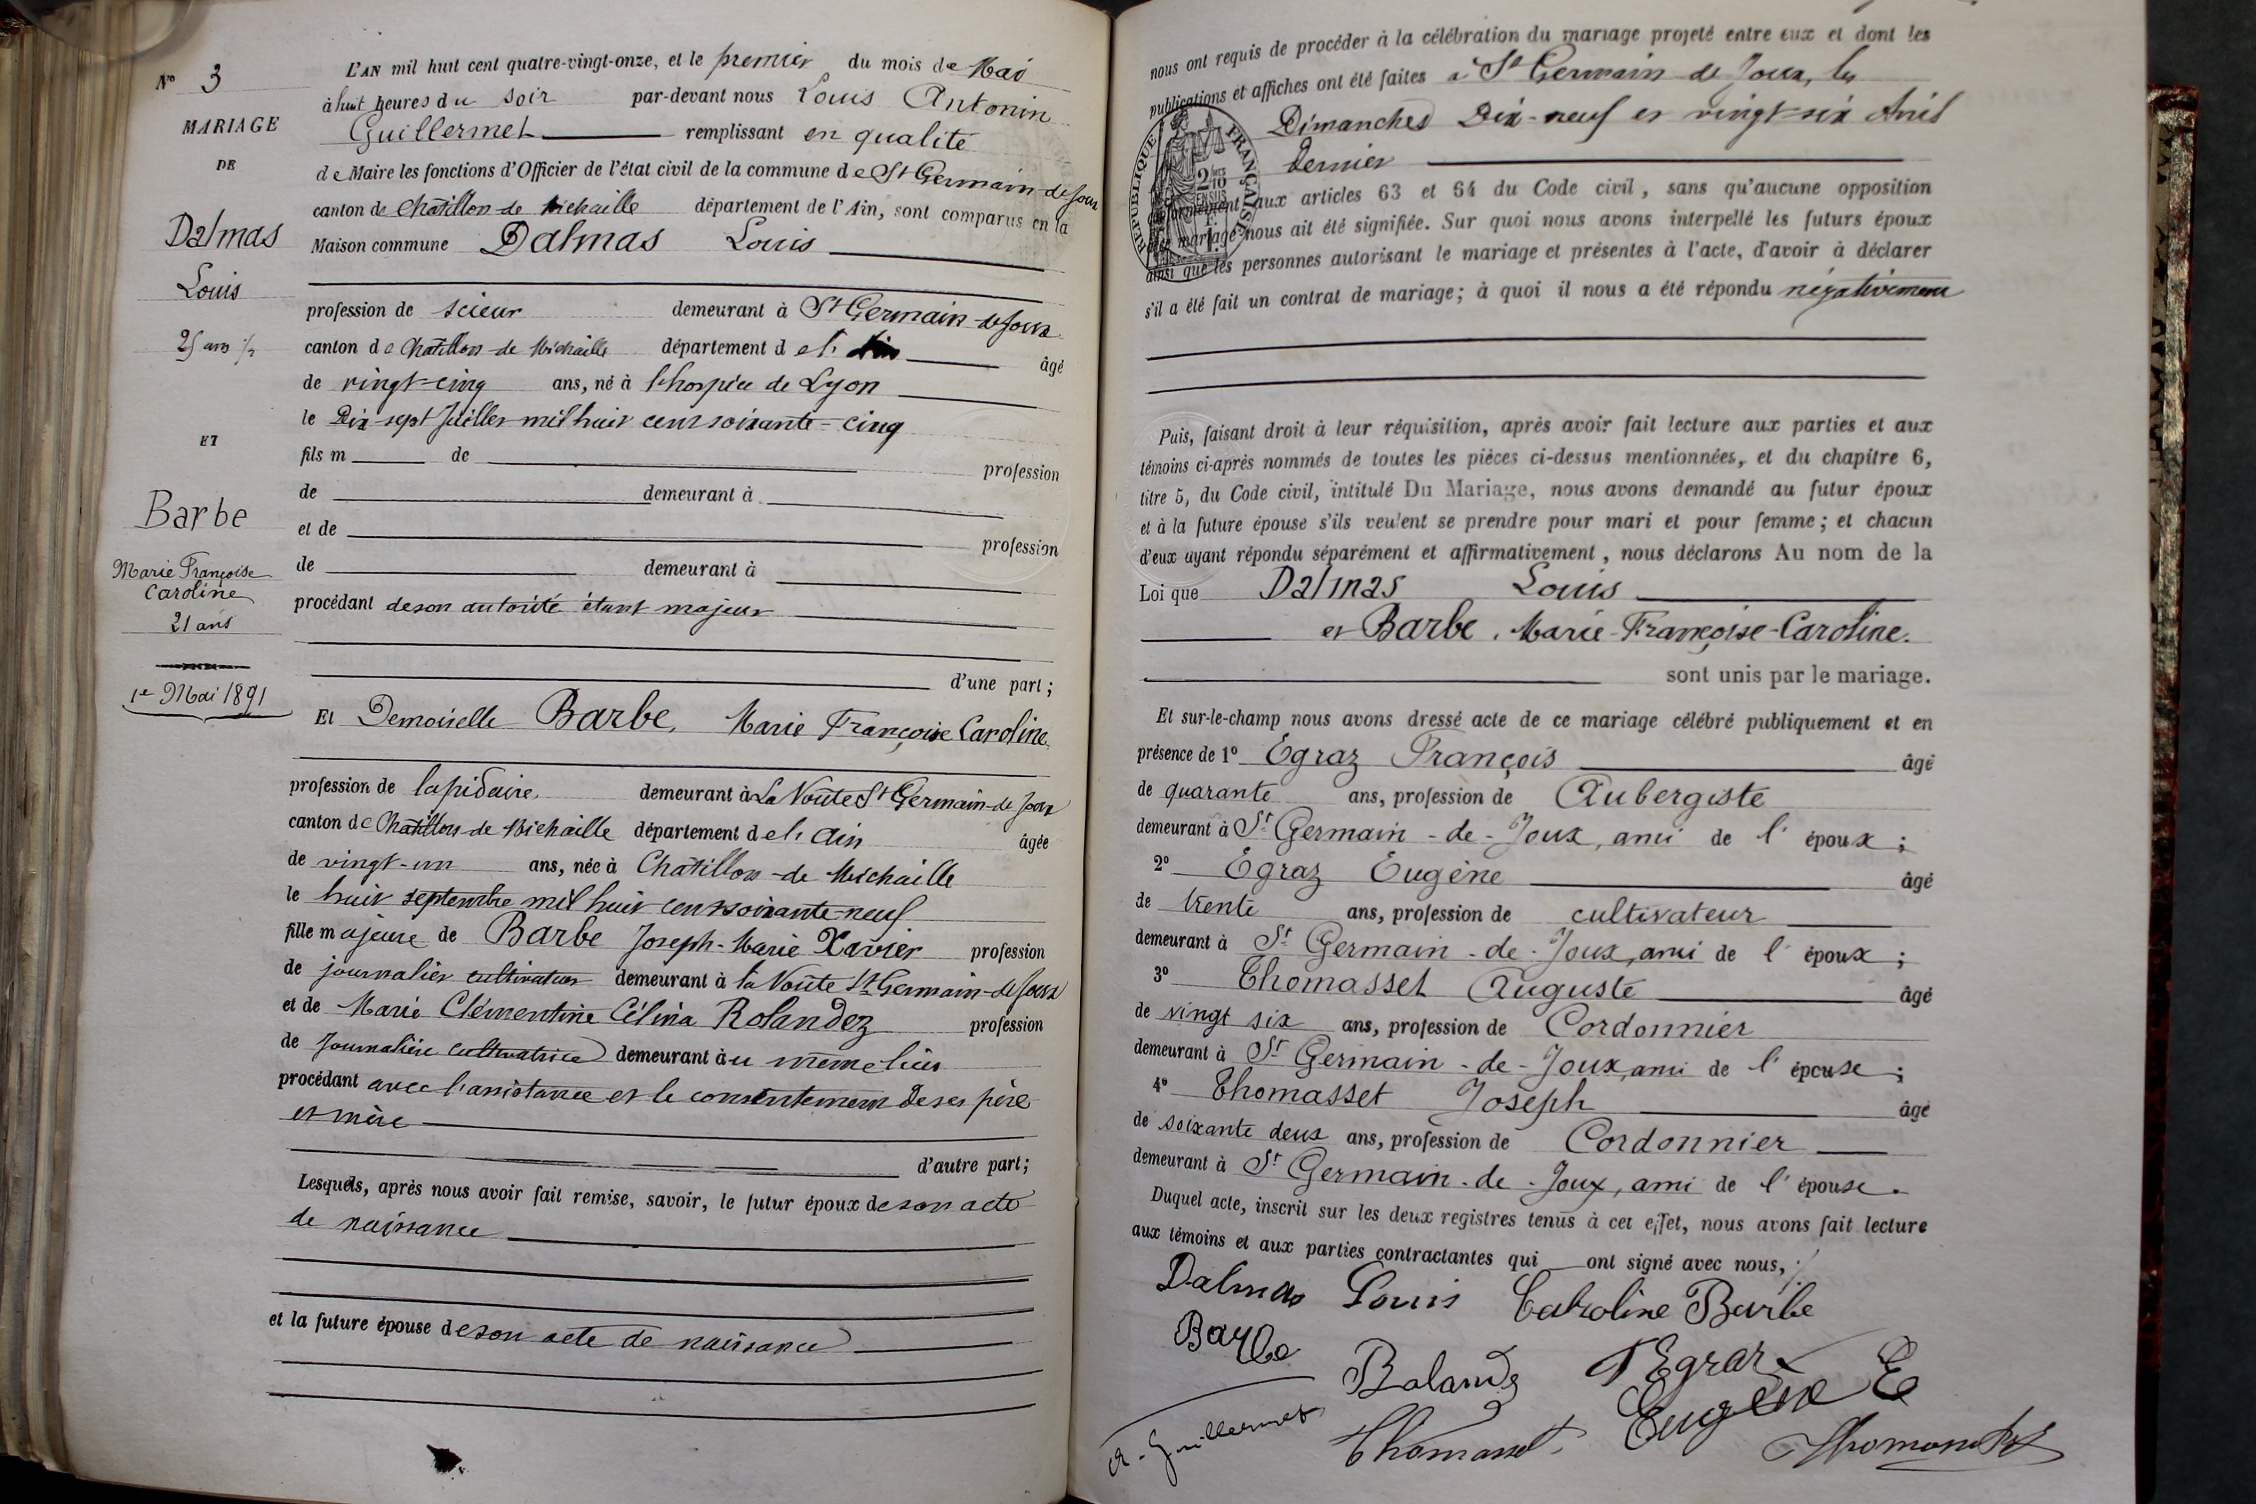 N° 3
MARIAGE
DE
Dalmas
Louis
25 ans ½
ET
Barbe
Marie Françoise
Caroline
21 ans
1er Mai 1891
L'AN mil huit cent quatre-vingt-onze, et le premier du mois de Mai
à huit heures du soir par-devant nous Louis Antonin
Guillermet remplissant en qualité
de Maire les fonctions d'Officier de l'état civil de la commune de St Germain-de-Joux
canton de Châtillon-de Michaille département de l'Ain, sont comparus en la
Maison commune Dalmas Louis
profession de scieur demeurant à St Germain-de Joux
canton de Châtillon-de Michaille département de l'Ain âgé
de vingt-cinq ans, né à l'hospice de Lyon
le Dix-sept Juillet mil huit cent soixante-cinq
fils m de profession
de demeurant à
et de profession
de demeurant à
procédant de son autorité étant majeur
d'une part ;
Et Demoiselle Barbe, Marie Françoise Caroline
profession de lapidaire demeurant à La Voûte St Germain-de Joux
canton de Châtillon-de-Michaille département de l'Ain âgée
de vingt-un ans, née à Châtillon-de Michaille
le huit septembre mil huit cent soixante-neuf
fille majeure de Barbe Joseph-Marie Xavier profession
de journalier cultivateur demeurant à la Voûte St Germain-de Joux
et de Marie Clémentine Célina Rolandez profession
de Journalière cultivatrice demeurant au même lieu
procédant avec l'assistance et le consentement de ses père
et mère
d'autre part ;
Lesquels, après nous avoir fait remise, savoir, le futur époux de son acte
de naissance
et la future épouse de son acte de naissance
nous ont requis de procéder à la célébration du mariage projeté entre eux et dont les
publications et affiches ont été faites à St Germain-de Joux, les
Dimanches Dix-neuf et vingt-six Avril
dernier
conformément aux articles 63 et 64 du Code civil, sans qu'aucune opposition
mariage nous ait été signifiée. Sur quoi nous avons interpellé les futurs époux
ainsi que les personnes autorisant le mariage et présentes à l'acte, d'avoir à déclarer
s'il a été fait un contrat de mariage ; à quoi il nous a été répondu négativement
REPUBLIQUE FRANÇAISE
Puis, faisant droit à leur réquisition, après avoir fait lecture aux parties et aux
témoins ci-après nommés de toutes les pièces ci-dessus mentionnées, et du chapitre 6,
titre 5, du Code civil, intitulé Du Mariage, nous avons demandé au futur époux
et à la future épouse s'ils veulent se prendre pour mari et pour femme ; et chacun
d'eux ayant répondu séparément et affirmativement, nous déclarons Au nom de la
Loi que Dalmas Louis
et Barbe, Marie-Françoise-Caroline.
sont unis par le mariage.
Et sur-le-champ nous avons dressé acte de ce mariage célébré publiquement et en
présence de 1° Egraz François âgé
de quarante ans, profession de Aubergiste
demeurant à St Germain-de-Joux, ami de l'époux ;
2° Egraz Eugène âgé
de trente ans, profession de cultivateur
demeurant à St Germain-de-Joux, ami de l'époux ;
3° Thomasset Auguste âgé
de vingt six ans, profession de Cordonnier
demeurant à St Germain-de-Joux, ami de l'épouse ;
4° Thomasset Joseph âgé
de soixante deux ans, profession de Cordonnier
demeurant à St Germain-de-Joux, ami de l'épouse.
Duquel acte, inscrit sur les deux registres tenus à cet effet, nous avons fait lecture
aux témoins et aux parties contractantes qui ont signé avec nous,
Dalmas Louis Caroline Barbe
Barbe Rolandz F Egraz
Eugène E
A. Guillermet Thomasset Thomasset